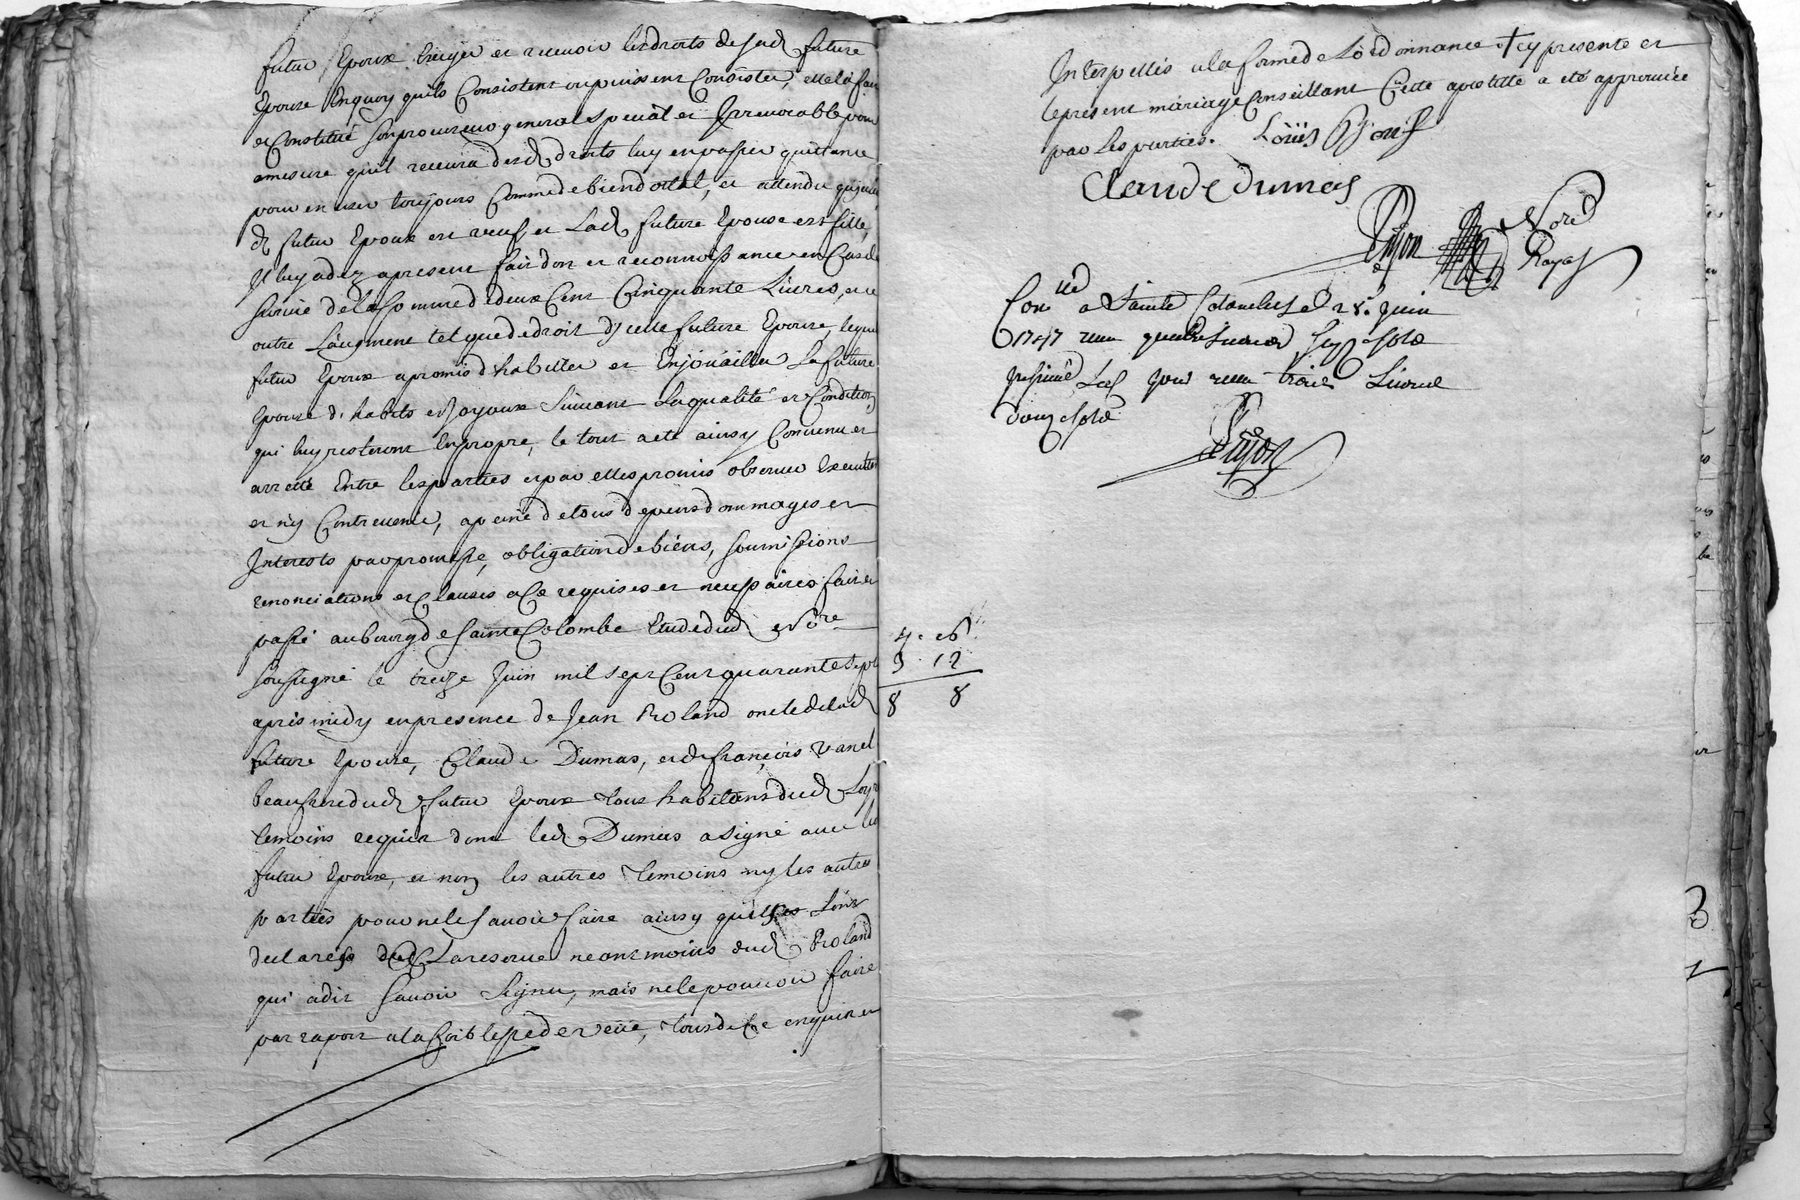 futur Epoux Exiger et recevoir les droits de sad future
Epouse En quoy quils Consistent ou puissent Consister, elle la fait
et Constitué son procureur general special et Irrevocable pour
amesure quil recevra desd droits luy en passer quittance
pour en user toujours Comme de bien dottal, et attendu que
d futur Epoux est veuf et Lad future Epouse est fille,
Il luy a dez apresent fait don et reconnoissance en Cas de
survie de la somme de deux Cent Cinquante Livres, et ce
outre Laugment tel que de droit dicelle future Epouse, lequel
futur Epoux a promis d'habiller et Enjoüailler La future
Epouse d'habits et Joyaux suivant sa qualité et Condition
qui luy resteront En propre, le tout a eté ainsy Convenu et
arreté Entre les parties et par elles promis observer Executer
et n'y Contrevenir, a peine de tous depens dommages et
Interests par promesse, obligation de biens, soumissions
renonciations et Clauses a Ce requises et necessaires fait et
passé au bourg de Sainte Colombe Etude dud Nore
soussigné le treize Juin mil sept Cent quarante sept
apres midy en presence de Jean Roland oncle de lad
future Epouse, Claude Dumas, et de françois Vanel
beaufrere dud futur Epoux tous habitans dud
temoins requis dont led Dumas a signé avec led
futur Epoux, et non les autres temoins ny les autres
parties pour ne le savoir faire ainsy quils ont
declaré Lareserve neantmoins dud Roland
qui a dit savoir signer, mais ne le pouvoir faire
par raport a la foiblesse de sa veüe, tous de Ce enquis et
4. 16
3 12
8 8
Interpellés a la forme de Lordonnance + cy presente et
le present mariage Conseillant Cette apostille a eté approuvée
par les parties. Loüis
Claude Dumas
Pijon Nore
Royal
Con lé a Sainte Colombe le 28. Juin
1747 receu quatre Livres
led jour receu trois Livres
douze sols
Pijon
3